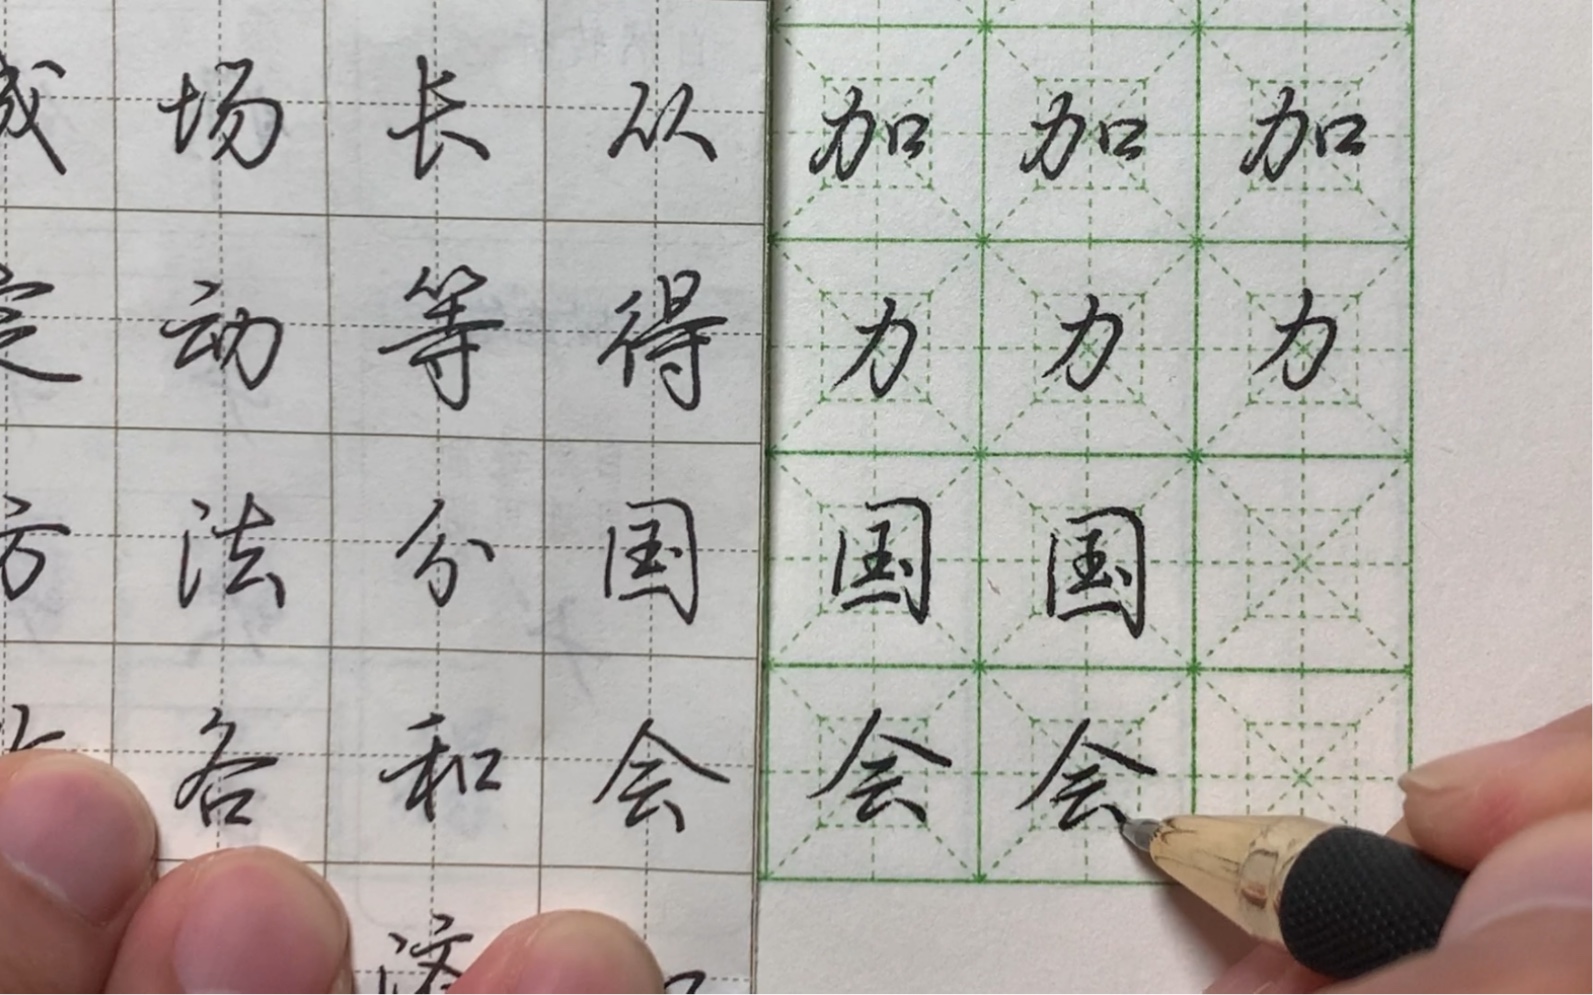 成 场 长 从 加 加 加
定 动 等 得 力 力 力
方 法 分 国 国 国
各 和 会 会 会
济